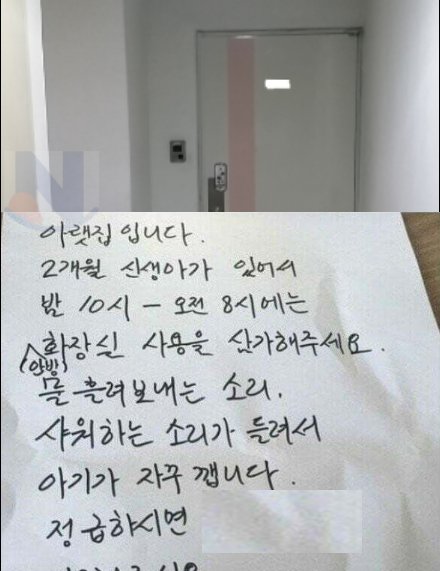 아랫집입니다.
2개월 신생아가 있어서
밤 10시 - 오전 8시에는
(안방) 화장실 사용을 삼가해주세요.
물 흘려보내는 소리.
샤워하는 소리가 들려서
아기가 자꾸 깹니다.
정 급하시면